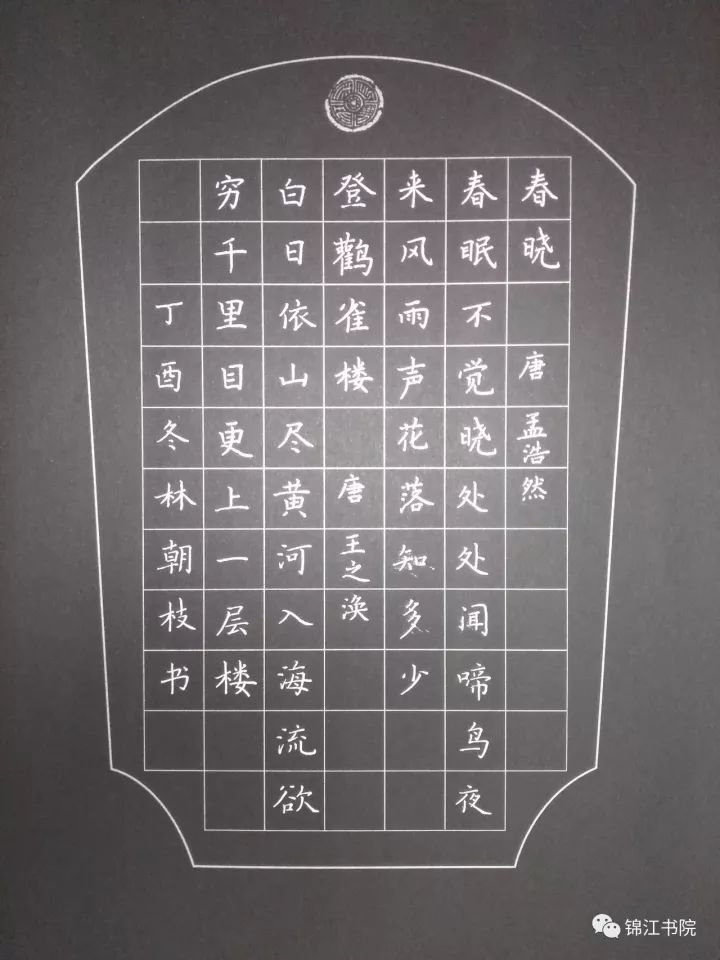 春晓 唐 孟浩然
春眠不觉晓处处闻啼鸟夜
来风雨声花落知多少
登鹳雀楼 唐 王之涣
白日依山尽黄河入海流欲
穷千里目更上一层楼
丁酉冬林朝枝书
锦江书院